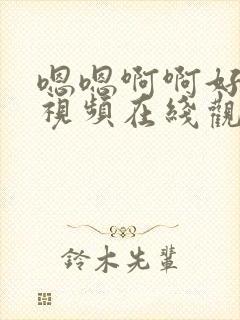 嗯嗯啊啊好
視頻在綫觀
鈴木先輩